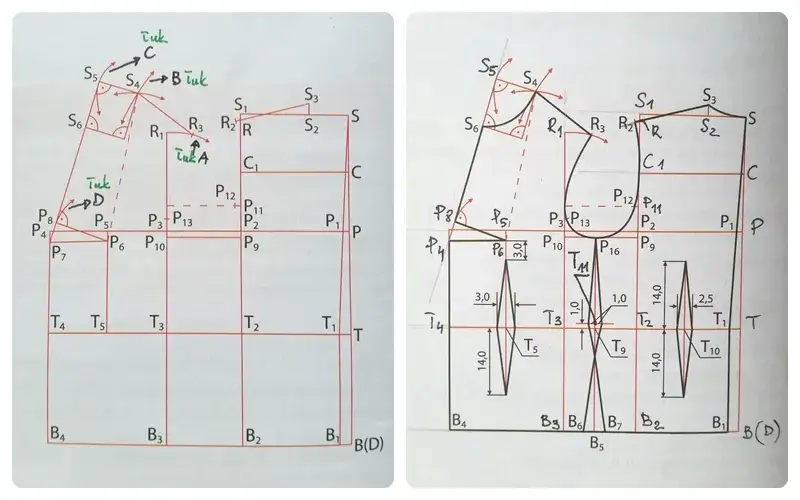 łuk
C
S5
S4
B łuk
S3
S1
R2
R
S2
S
S6
R1
R3
łuk A
C1
C
łuk
D
P12
P11
P8
P4
P5
P3
P13
P2
P1
P
P7
P6
P10
P9
T4
T5
T3
T2
T1
T
B4
B3
B2
B1
B(D)
S5
S4
S3
S1
R2
R
S2
S
S6
R1
R3
C1
C
P12
P11
P8
P5
P3
P13
P2
P1
P
P4
P6
3,0
P10
P16
P9
T11
14,0
3,0
1,0
1,0
2,5
T4
T3
T2
T1
T
T5
T9
T10
14,0
14,0
B4
B3
B6
B7
B2
B1
B(D)
B5